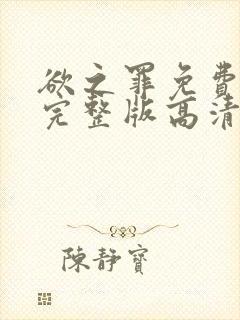 欲之罪免費
完整版高清
陳靜寶